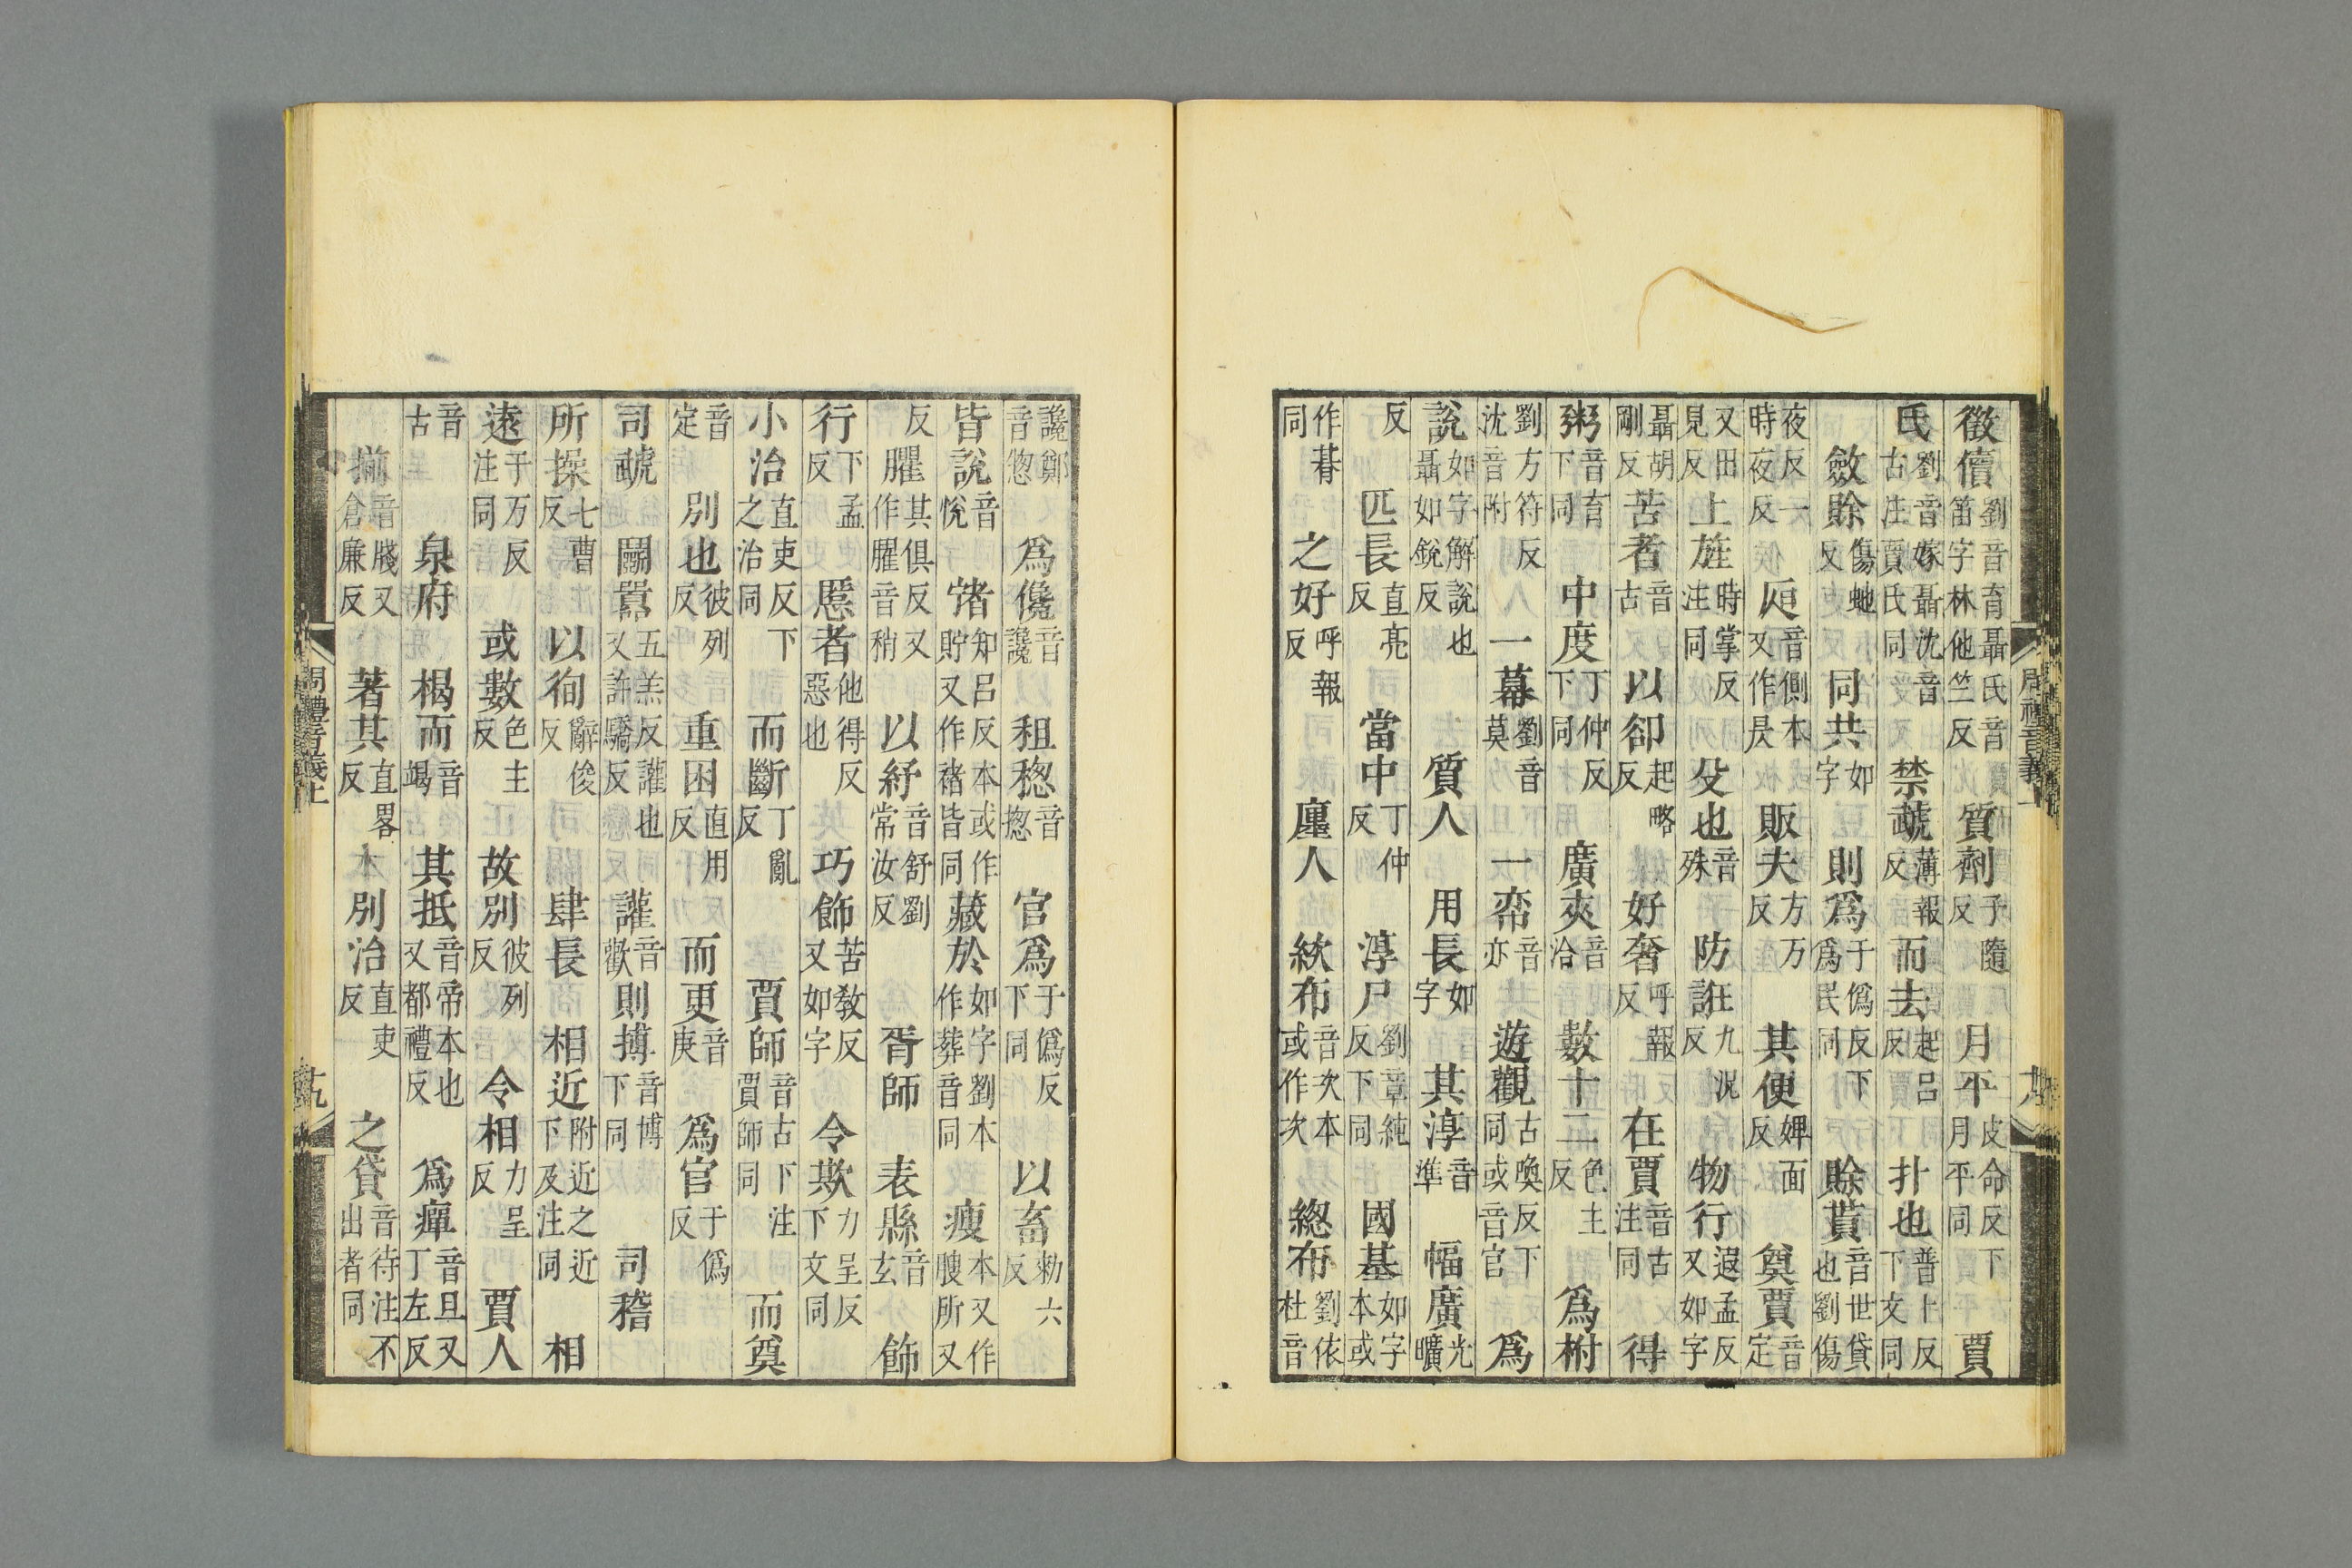 徵儥劉音育聶氏音笛字林他竺反 質劑子隨反 月平皮命反下月平同 賈
氏劉音嫁聶沈音古注賈氏同 禁虣薄報反 而去起呂反 扑也普卜反下文同
斂賖傷虵反 同共如字 則爲于僞反下爲民同 賖貰音世貸也劉傷
夜反一時夜反 𠨍音側本又作昃 販夫方万反 其便婢面反 奠賈音定
又田見反 上旌時掌反注同 殳也音殊 防誑九況反 物行遐孟反又如字
聶胡剛反 苦者音古 以卻起略反 好奢呼報反 在賈音古注同 得
粥音育下同 中度丁仲反下同 廣夾音洽 數十二色主反 爲柎
劉方符反沈音附 一幕劉音莫 一帟音亦 遊觀古喚反下同或音官 爲
說如字解說也聶如銳反 質人 用長如字 其淳音準 幅廣光曠
反 匹長直亮反 當中丁仲反 淳尸劉章純反下同 國基如字本或
作朞同 之好呼報反 廛人 絘布音次本或作次 總布劉依杜音
周禮音義上
讒鄭音惚 爲儳音讒 租稯音揔 官爲于僞反下同 以畜勑六反
皆說音悅 㣥知呂反本或作貯又作禇皆同 藏於如字劉本作葬音同 瘦本又作膄所又
反 臞其俱反又作臞音稍 以紓音舒劉常汝反 胥師 表縣音玄 飾
行下孟反 慝者他得反惡也 巧飾苦教反又如字 令欺力呈反下文同
小治直吏反下之治同 而斷丁亂反 賈師音古下注賈師同 而奠
音定 別也彼列反 重困直用反 而更音庚 爲官于僞反
司虣 鬭嚻五羔反讙也又許驕反 讙音歡 則搏音博下同 司稽
所操七曹反 以徇辭俊反 肆長 相近附近之近下及注同 相
遠于万反注同 或數色主反 故別彼列反 令相力呈反 賈人
音古 泉府 楬而音竭 其抵音帝本也又都禮反 爲癉音旦又丁左反
揃音牋又倉廉反 著其直畧反 別治直吏反 之貸音待注不出者同
周禮音義上 十九